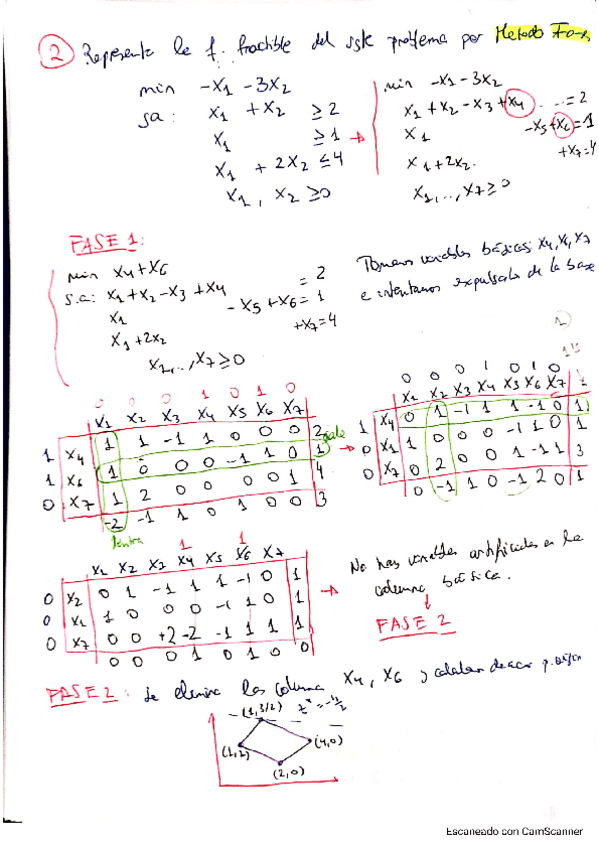 2 Represente la f. factible del sgte problema por Metodo
min -x1 -3x2
sa: x1 +x2 ≥2
x1 ≥1
x1 +2x2 ≤4
x1, x2 ≥0
min -x1 -3x2
x1 +x2 -x3 +x4 = 2
x1 -x5 +x6 = 1
x1 +2x2 +x7 = 4
x1, .., x7 ≥0
FASE 1:
min x4+x6
s.a: x1 +x2 -x3 +x4 = 2
x1 -x5 +x6 = 1
x1 +2x2 +x7 = 4
x1, .., x7 ≥0
Tomamos variables básicas: x4, x6, x7
e intentamos expulsarlo de la base
0 0 0 1 0 1 0
x1 x2 x3 x4 x5 x6 x7
1 x4 1 1 -1 1 0 0 0 2
1 x6 1 0 0 0 -1 1 0 1 sale
0 x7 1 2 0 0 0 0 1 4
-2 -1 1 0 1 0 0 3
entra
0 0 0 1 0 1 0
x1 x2 x3 x4 x5 x6 x7
1 x4 0 1 -1 1 1 -1 0 1
0 x1 1 0 0 0 -1 1 0 1
0 x7 0 2 0 0 1 -1 1 3
0 -1 1 0 -1 2 0 1
1 1
x1 x2 x3 x4 x5 x6 x7
0 x2 0 1 -1 1 1 -1 0 1
0 x1 1 0 0 0 -1 1 0 1
0 x7 0 0 +2 -2 -1 1 1 1
0 0 0 1 0 1 0 0
No hay variables artificiales en la
columna básica.
FASE 2
FASE 2: Se elimina las columna x4, x6 y
(1,3/2) z*=
(1,2)
(4,0)
(2,0)
Escaneado con CamScanner